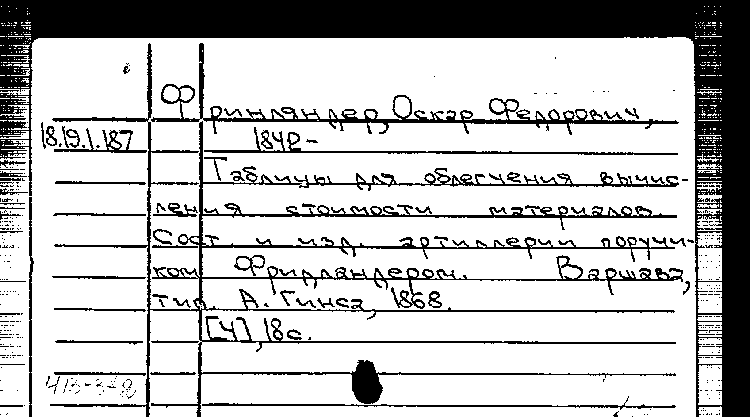 Фринляндер, Оскар Федорович,
18.19.1.187 1842-
Таблицы для облегчения вычис-
ления стоимости материалов.
Сост. и изд. артиллерии поручи-
ком Фридляндером. Варшава,
тип. А. Гинса, 1868.
[4], 18 с.